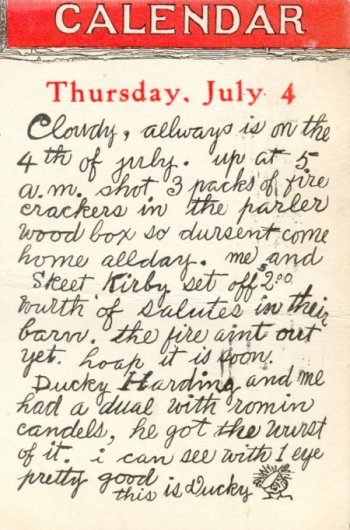 CALENDAR
Thursday, July 4
Clowdy, allways is on the
4th of july. up at 5
a.m. shot 3 packs of fire
crackers in the parler
wood box so dursent come
home allday. me and
Skeet Kirby set off $2.00
wurth of salutes in their
barn. the fire aint out
yet. hoap it is soon.
Ducky Harding and me
had a dual with romin
candels, he got the wurst
of it. i can see with 1 eye
pretty good
this is Ducky